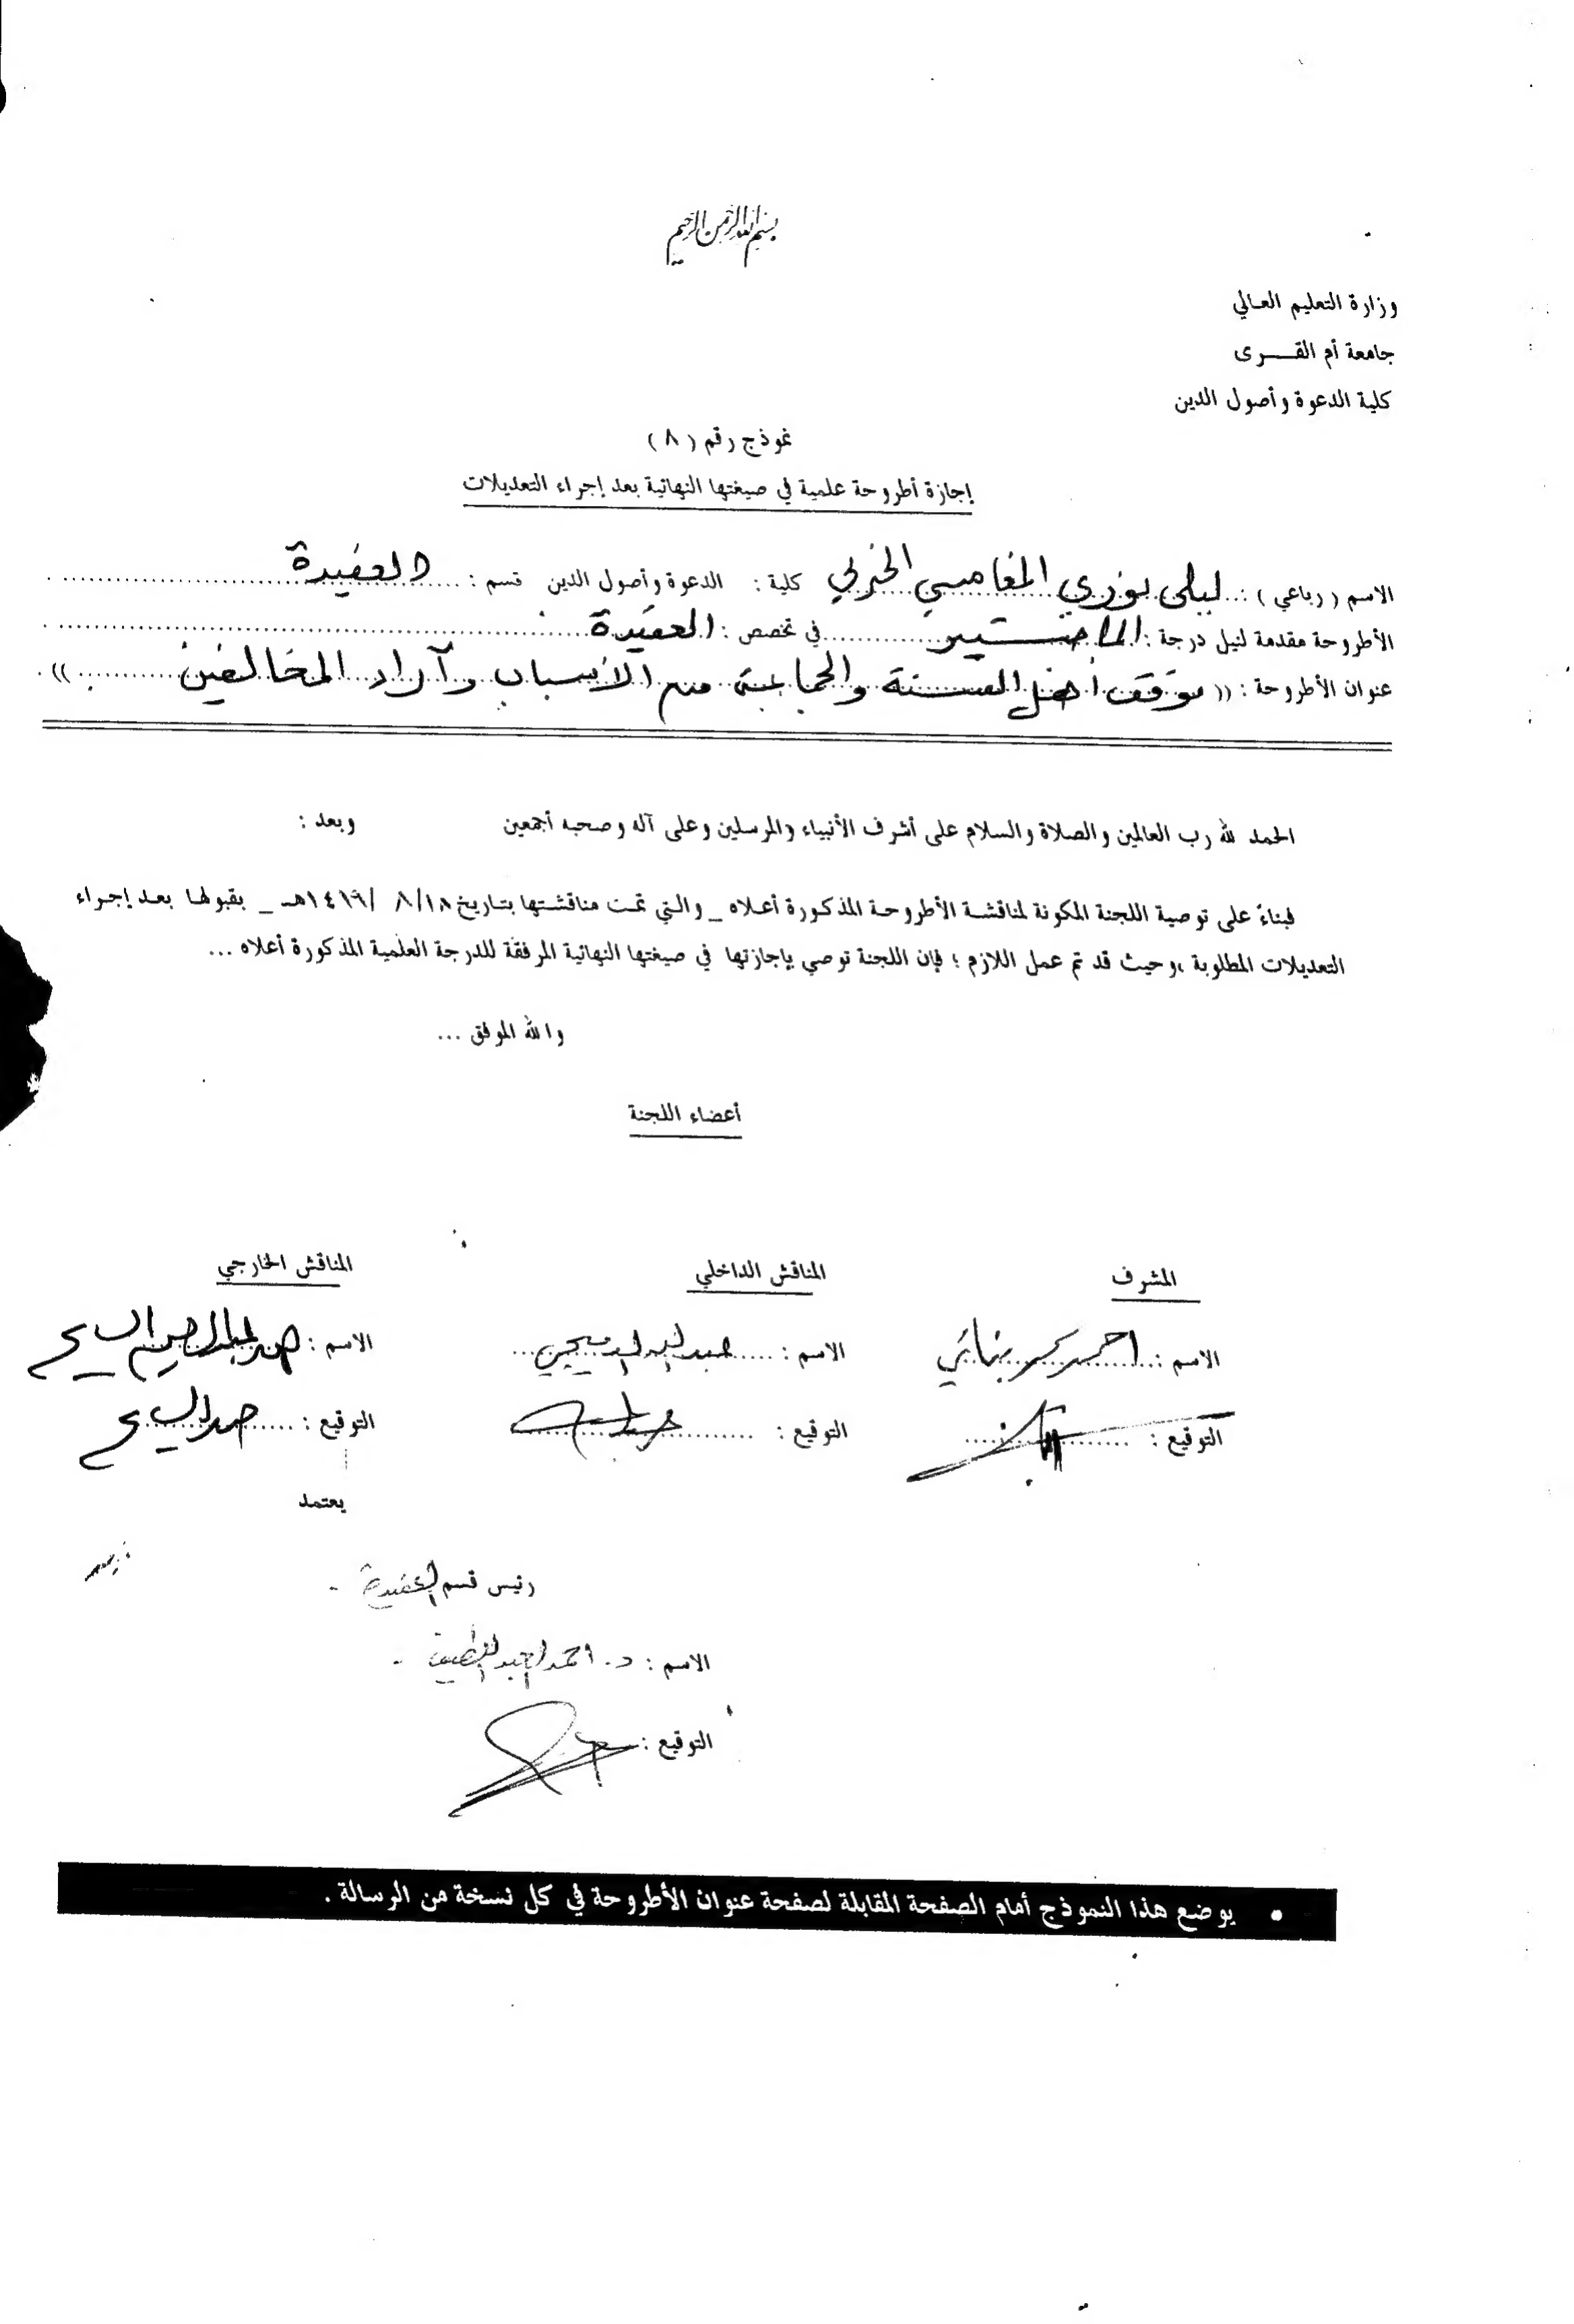 بسم الله الرحمن الرحيم
وزارة التعليم العالي
جامعة أم القـــرى
كلية الدعوة وأصول الدين
نموذج رقم (٨)
إجازة أطروحة علمية في صيغتها النهائية بعد إجراء التعديلات
الاسم (رباعي) : ليلى نوري المغامسي الحربي كلية : الدعوة وأصول الدين قسم : العقيدة
الأطروحة مقدمة لنيل درجة : الماجستير في تخصص : العقيدة
عنوان الأطروحة : (( موقف أهل السنة والجماعة من الأسباب وآراء المخالفين ))
الحمد لله رب العالمين والصلاة والسلام على أشرف الأنبياء والمرسلين وعلى آله وصحبه أجمعين وبعد :
فبناءً على توصية اللجنة المكونة لمناقشة الأطروحة المذكورة أعلاه _ والتي تمت مناقشتها بتاريخ ١٨/ ٨ /١٤١٩هـ _ بقبولها بعد إجراء
التعديلات المطلوبة ،وحيث قد تم عمل اللازم ؛ فإن اللجنة توصي بإجازتها في صيغتها النهائية المرفقة للدرجة العلمية المذكورة أعلاه ...
والله الموفق ...
أعضاء اللجنة
المشرف المناقش الداخلي المناقش الخارجي
الاسم : احمد بناني الاسم : عبد الله الدميجي الاسم :
التوقيع : التوقيع : التوقيع :
يعتمد
رئيس قسم العقيدة
الاسم : د. احمد العبد اللطيف
التوقيع :
• يوضع هذا النموذج أمام الصفحة المقابلة لصفحة عنوان الأطروحة في كل نسخة من الرسالة .